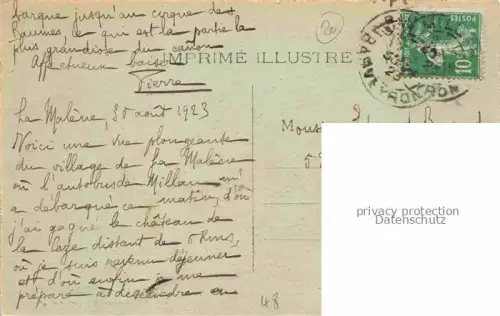 barque jusqu'au cirque des
Baumes, ce qui est la partie la
plus grandiose du cañon
Affectueux baisers
Pierre
IMPRIMÉ ILLUSTRÉ
La Malène, 30 août 1923
Voici une vue plongeante
du village de La Malène
où l'autobus de Millau m'
a débarqué ce matin, d'où
j'ai gagné le château de
la Caze distant de 5 Kms,
où je suis revenu déjeuner
et d'où enfin je me
prépare à descendre en
48
POSTES
10
AVEYRON
privacy protection
Datenschutz